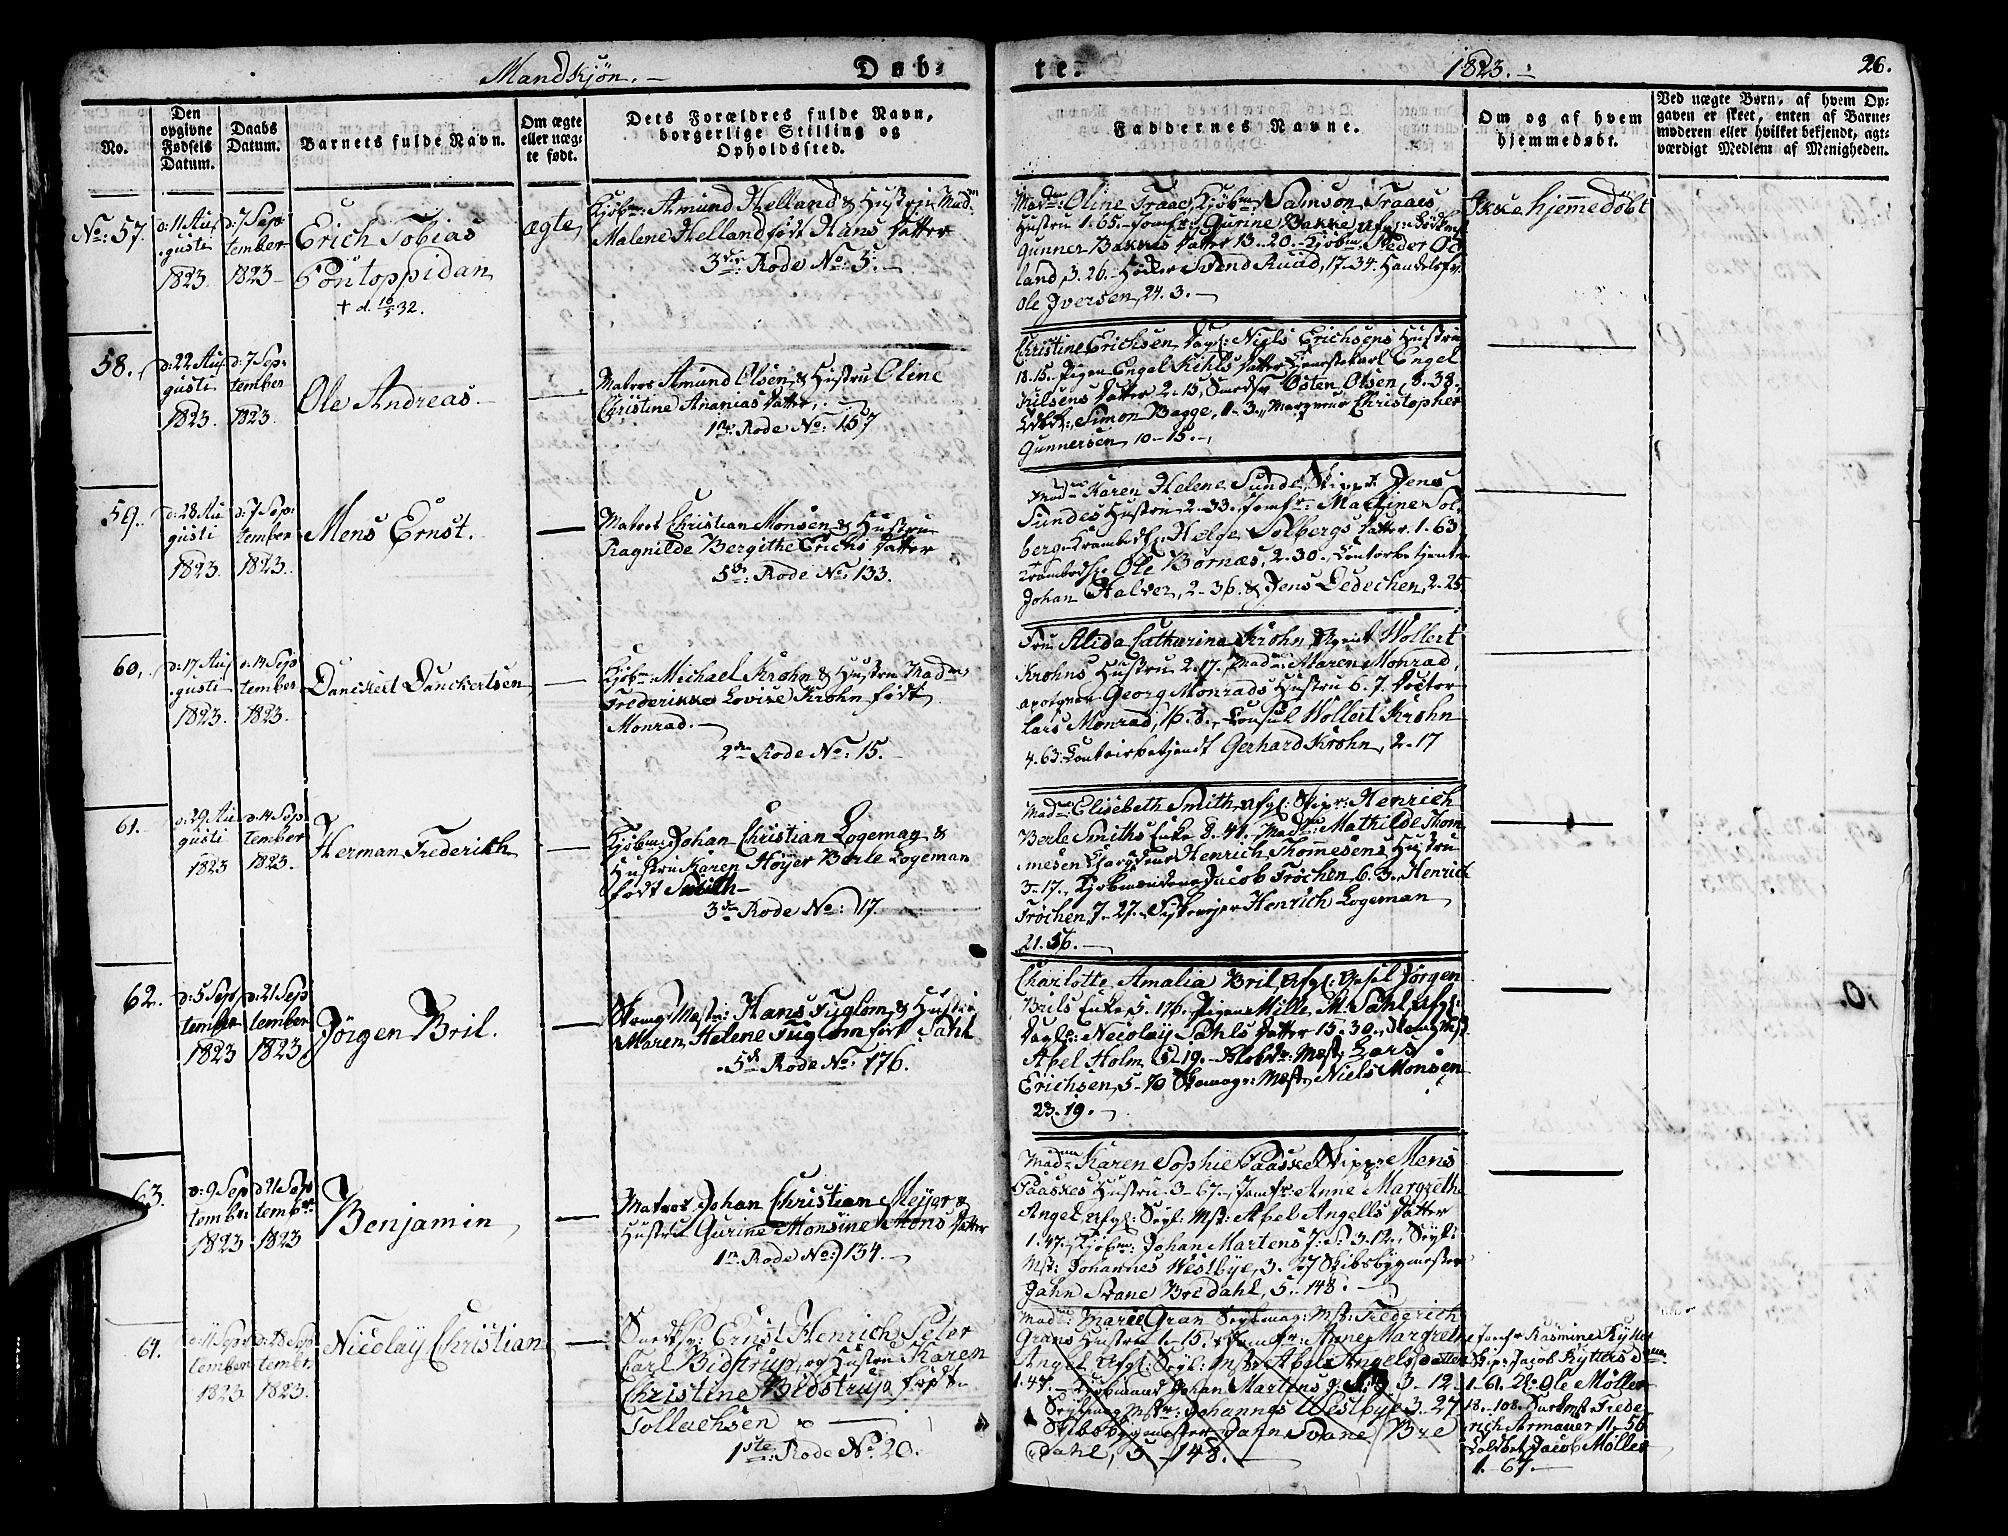 Mandkjön.
Døb-
te.
1823.
26.
No.
Den opgivne Fødsels Datum.
Daabs Datum.
Barnets fulde Navn.
Om ægte eller uægte født.
Dets Forældres fulde Navn, borgerlige Stilling og Opholdssted.
Faddernes Navne.
Om og af hvem hjemmedøbt.
Ved uægte Børn, af hvem Opgaven er skeet, enten af Barnemoderen eller hvilket bekjendt, agtværdigt Medlem af Menigheden.
No: 57.
d: 11 Augusti 1823.
d: 7 September 1823
Erich Tobias
Pontoppidan
† d. 10/5 32.
ægte
Kjøbm: Amund Helland & Hustru Mad:
Malene Helland født Hans Datter
3de Rode No: 5.
Mad: Oline Traae, Kjøbm Samson Traaes
Hustru 1.65. Jomfru Gurine Bakke
Gunner Bakkes Datter 13.20. Kjøbm: Peder Od
land, 3.26. Høker Svend Ruud, 17-34. Handelsf:
Ole Iversen, 24.3.
Ikke hjemmedøbt
58.
d: 22 Augusti 1823.
d: 7 September 1823.
Ole Andreas.
Matros Amund Olsen, & Hustru Oline
Christine Ananias Datter,
1ste Rode No: 157
Christine Erichsen, Niels Erichsens Hustru
18.15. Pigen Engel Kihls Datter Engel
Nilsens Datter 2-15, Svend Østen Olsen, 8.38.
Simon Bagge, 1-3. Christopher
Gunnersen, 10-15.
59.
d: 28 Augusti 1823.
d: 7 September 1823.
Mens Ernst.
Matros Christian Monsen & Hustru
Ragnilde Bergithe Erichs Datter
5te Rode No: 133.
Mad: Karen Helene Sunde, Skipp: Jens
Sundes Hustru 2-33. Jomfr: Martine Sol
berg Krambodh: Helge Solbergs Datter. 1-63
Krambodh: Ole Bornæs, 2.30. Contorbetjent
Johan Halver, 2-36. & Jens Ledechen, 2-25
60.
d: 17 Augusti 1823.
d: 14 September 1823.
Danckert Danckertsen
Kjøbm Michael Krohn & Hustru Madme
Frederikke Lovise Krohn født
Monrad.
2den Rode No: 15.
Fru Alida Catharina Krohn, Agent Wollert
Krohns Hustru 2.17. Mad: Maren Monrad,
Georg Monrads Hustru 6.7. Doctor
Lars Monrad, 16.8. Consul Wollert Krohn
4.63. Contoirbetjendt Gerhard Krohn, 2-17
61.
d: 29 Augusti 1823
d: 14 September 1823.
Herman Frederikh
Kjøbm: Johan Christian Logeman, &
Hustru Karen Høyer Berle Logeman
født Smith
3de Rode No: 17.
Mad: Elisebeth Smith, Afgl: Skipr: Henrich
Berle Smiths Enke 8.41. Mad: Mathilde Thom
mesen Henrich Thommesens Hustru
3-17. Kjøbmændene Jacob Trochen, 6.3. Henrich
Trochen, 7-27. Henrich Logeman
21.56.
62.
d: 5 September 1823
d: 21 September 1823
Jørgen Bril.
Skomg: Mest: Hans Fuglom, & Hustru
Maren Helene Fuglom født Sahl
5te Rode No: 176.
Charlotte Amalia Bril, Afgl: Jørgen
Brils Enke 5.176. Pigen Mille M. Sahl, Afgl:
Dagl: Necolay Sahls Datter 15.30. Skomg: Mst
Abel Holm, 5-19. Mest: Lars
Erichsen, 5-70 Skomagr: Mest: Niels Monsen
23.19.
63.
d: 9 September 1823
d: 21 September 1823
Benjamin
Matros Johan Christian Meyer &
Hustru Gurine Monsine Mons Datter
1ste Rode No: 134.
Madme Karen Sophie Paaske, Skipp: Mens
Paaskes Hustru. 3-67. Jomfr: Anne Margrethe
Angel, Afgl: Seyl: Mst: Abel Angells Datter
1.47. Kjøbm: Johan Martens 3.12. Seyl:
Mst: Johannes Westbye, 3.27 Skibsbygmester
Jahn Svane Bredahl, 5.-148.
64.
d: 11 September 1823
d: 28 September 1823.
Nicolay Christian
Ernst Henrich Peter
Carl Bidstrup, og Hustru Karen
Christine Bidstrup født
Tollachsen
1ste Rode No 20.
Mad: Marie Gran Seylmag: Mst: Frederich
Grans Hustru 1-15, Jomfr: Anne Margrethe
Angel Afgl: Seyl: Mst: Abel Angels Datter
1.47. Kjøbmand Johan Martens 3-12.
Seylmag Mst: Johannes Westbye 3.27
Skibsbygmester Jahn Svane Bre
dahl, 5-148.
Jomfr Rasmine Kytter
Skip: Jacob Kytters D
1-61. Ole Møller
18.-108. Frede
rich Armauer 11-56
Jacob Møller
1-67.